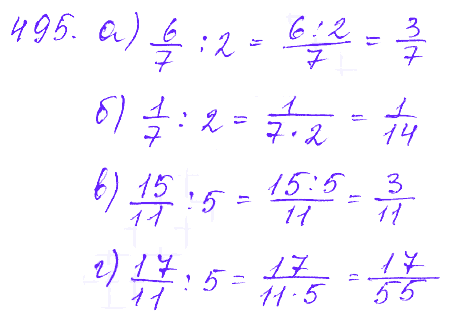 495. а) 6/7 : 2 = 6:2/7 = 3/7
б) 1/7 : 2 = 1/7·2 = 1/14
в) 15/11 : 5 = 15:5/11 = 3/11
г) 17/11 : 5 = 17/11·5 = 17/55